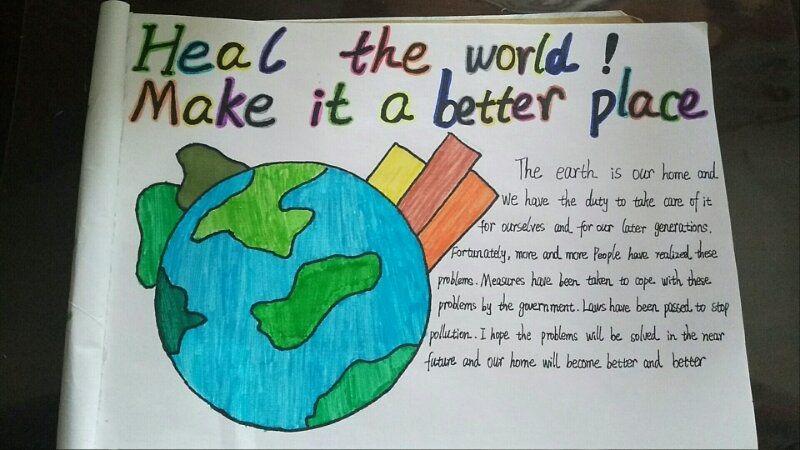 Heal the world!
Make it a better place
The earth is our home and
We have the duty to take care of it
for ourselves and for our later generations.
Fortunately, more and more People have realized these
problems. Measures have been taken to cope with these
problems by the government. Laws have been passed to stop
pollution. I hope the problems will be solved in the near
future and our home will become better and better